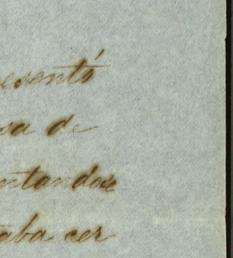 esentó
sa de
ntandose
taba cer